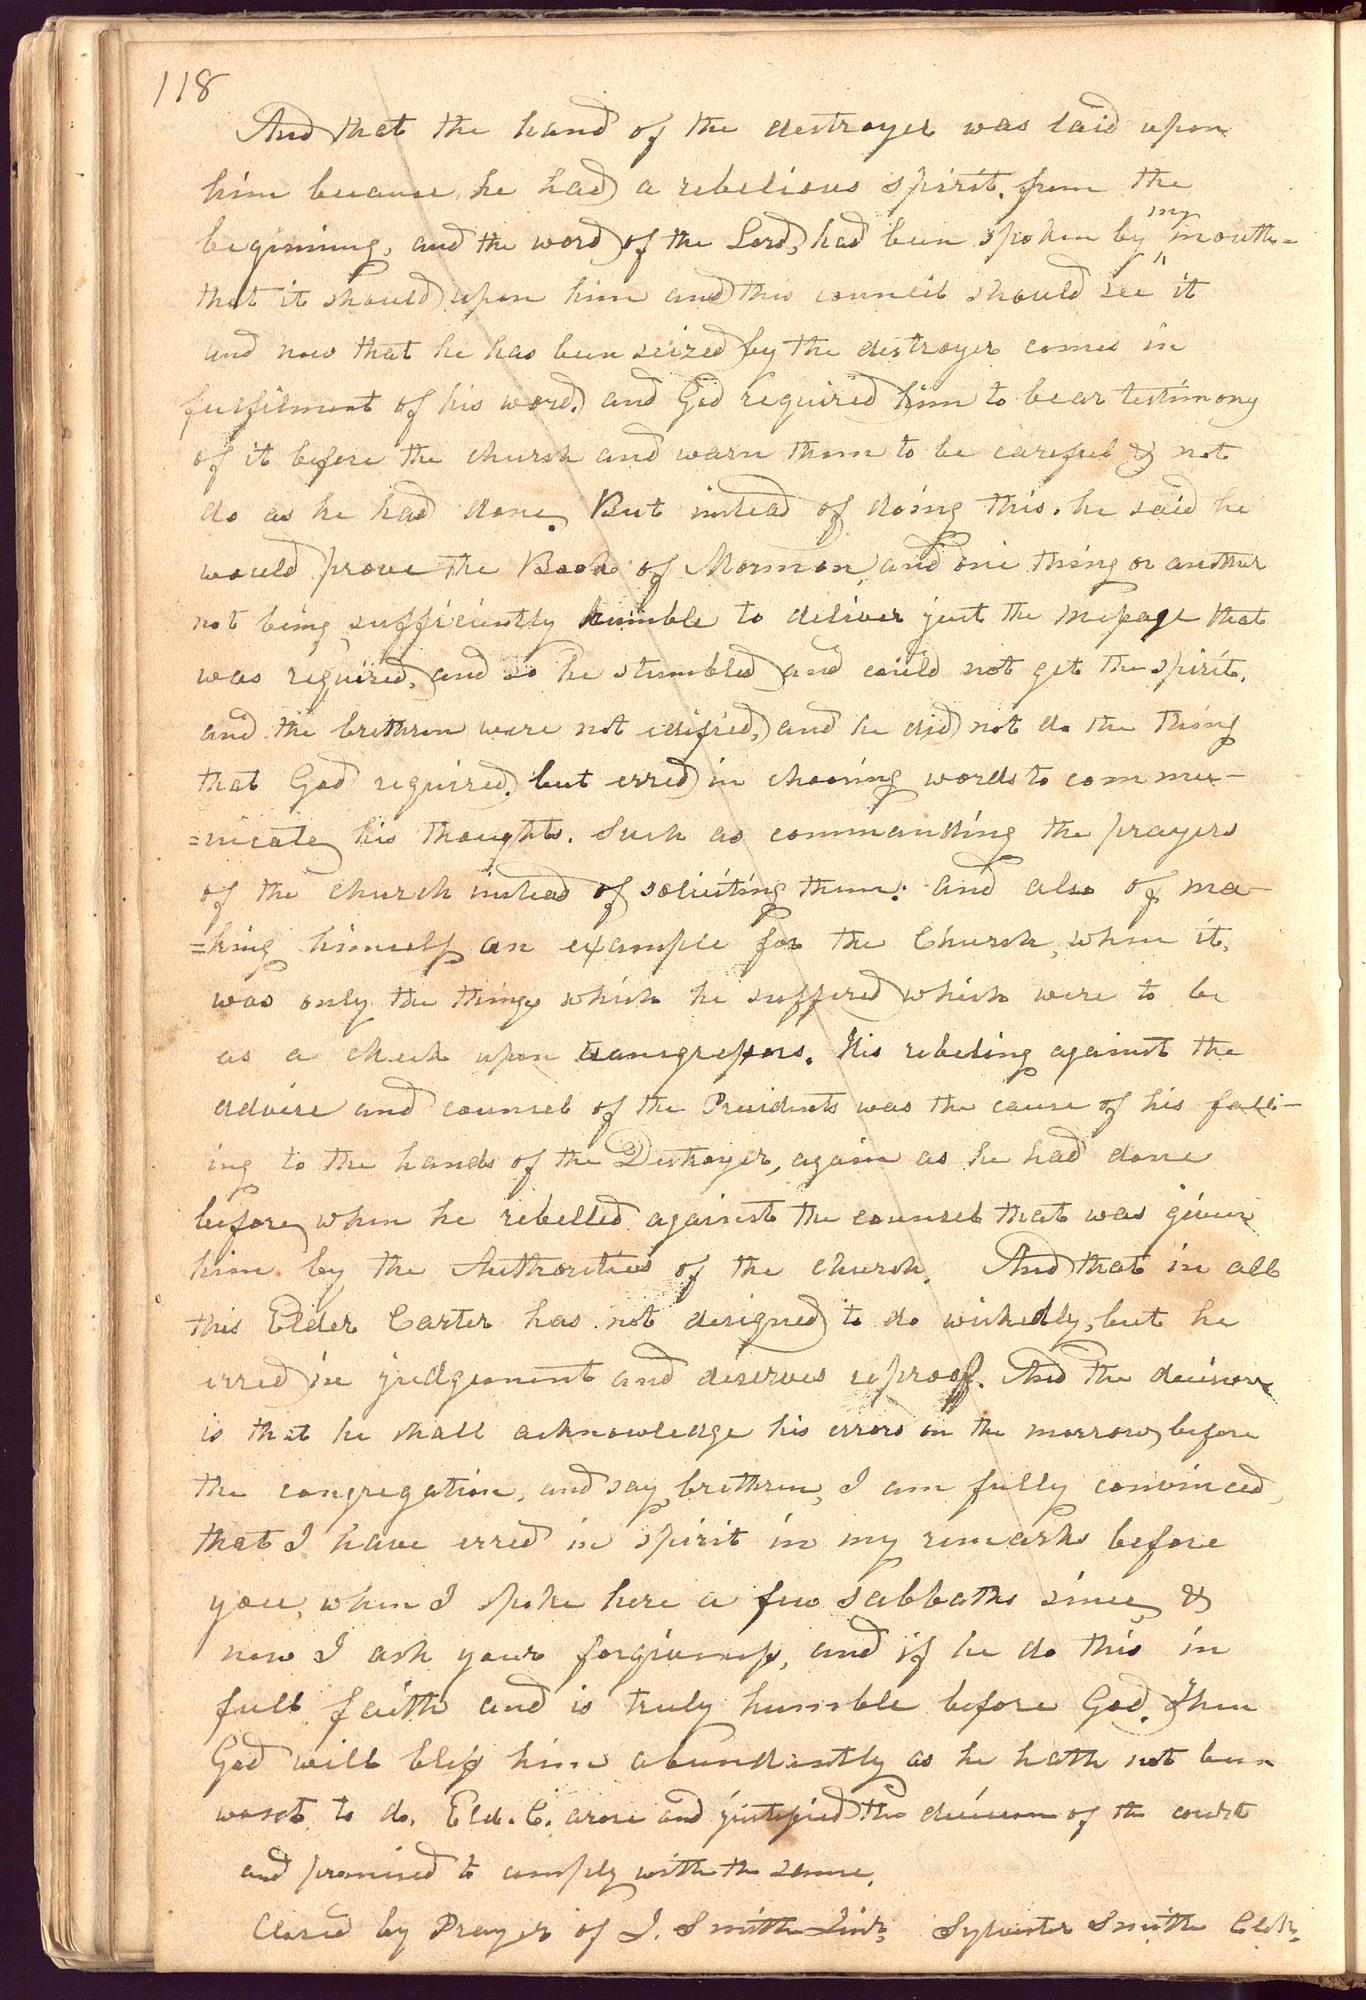 118
And that the hand of the destroyer was laid upon
him because he had a rebelious spirit, from the
my
beginning, and the word of the Lord, had been spoken by mouth=
that it should upon him and this council should see it
and now that he has been seized by the destroyer comes in
fulfilment of his word, and God required him to bear testimony
of it before the church and warn them to be careful & not
do as he had done. But instead of doing this, he said he
would prove the Book of Mormon, and one thing or another
not being sufficiently humble to deliver just the message that
was required, and so he stumbled and could not get the spirit,
and the brethren were not edified, and he did not do the thing
that God required, but erred in choosing words to commu-
=nicate his thoughts. Such as commanding the prayers
of the church instead of soliciting them: and also of ma-
=king himself an example for the Church, when it,
was only the things which he suffered which were to be
as a check upon transgressors. His rebeling against the
advice and counsel of the Presidents was the cause of his fall-
ing to the hands of the Destroyer, again as he had done
before when he rebelled against the counsel that was given
him by the Authorities of the church. And that in all
this Elder Carter has not designed to do wickedly, but he
erred in judgement and deserves reproof. And the decision
is that he shall acknowledge his errors on the morrow, before
the congregation, and say, brethren, I am fully convinced,
that I have erred in spirit in my remarks before
you, when I spoke here a few sabbaths since, &
now I ask your forgiveness, and if he do this in
full faith and is truly humble before God, then
God will bless him abundantly as he hath not been
wont to do. Eld. C. arose and justified the decision of the court
and promised to comply with the same.
Closed by Prayer of J. Smith Junr, Sylvester Smith Clerk,